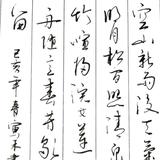 空山新雨後天
明月松間照清泉
竹喧歸浣女蓮
舟隨意春芳歇
留
己亥年春寅木書